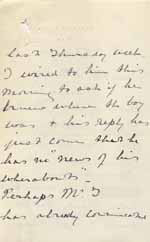 last Thursday week.
I wired to him this
morning to ask if he
knew where the boy
was & his reply has
just come that he
has no "news of his
whereabouts".
Perhaps Mr. T
has already